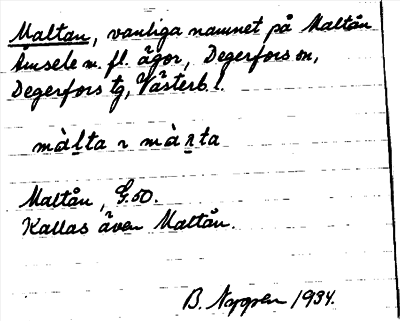 Maltan, vanliga namnet på Maltån
Åmsele m. fl. ägor, Degerfors sn,
Degerfors tg, Västerb. l.
màl̠ta ~ màn̠ta
Maltån, G.50.
Kallas även Maltån.
B. Nygren 1934.